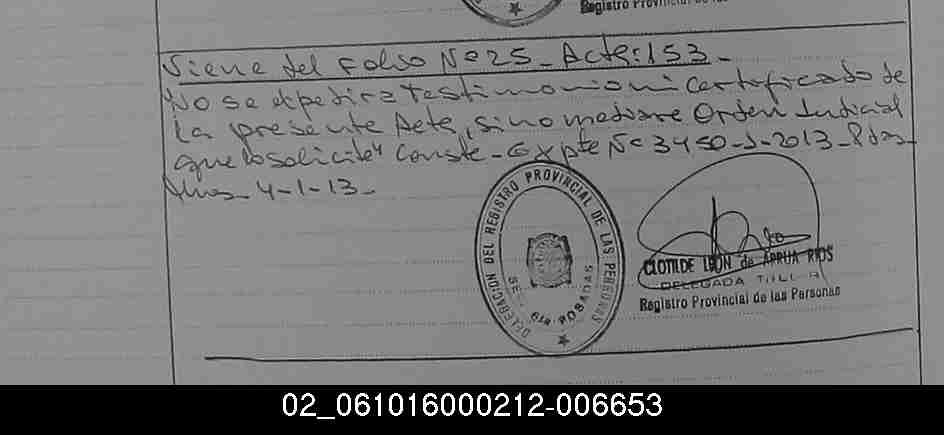 Registro Provincial de las
Viene del Folio Nº 25 - Acta: 153 -
No se expedira testimonio ni Certificado de
la presente Acta, sino mediare Orden Judicial
que lo solicite" Conste - Expte Nº 3450-J-2013 - Pdas
4-1-13 -
DELEGACION DEL REGISTRO PROVINCIAL DE LAS PERSONAS
POSADAS
CLOTILDE LEON de APRUA RIOS
DELEGADA TITULAR
Registro Provincial de las Personas
02_061016000212-006653